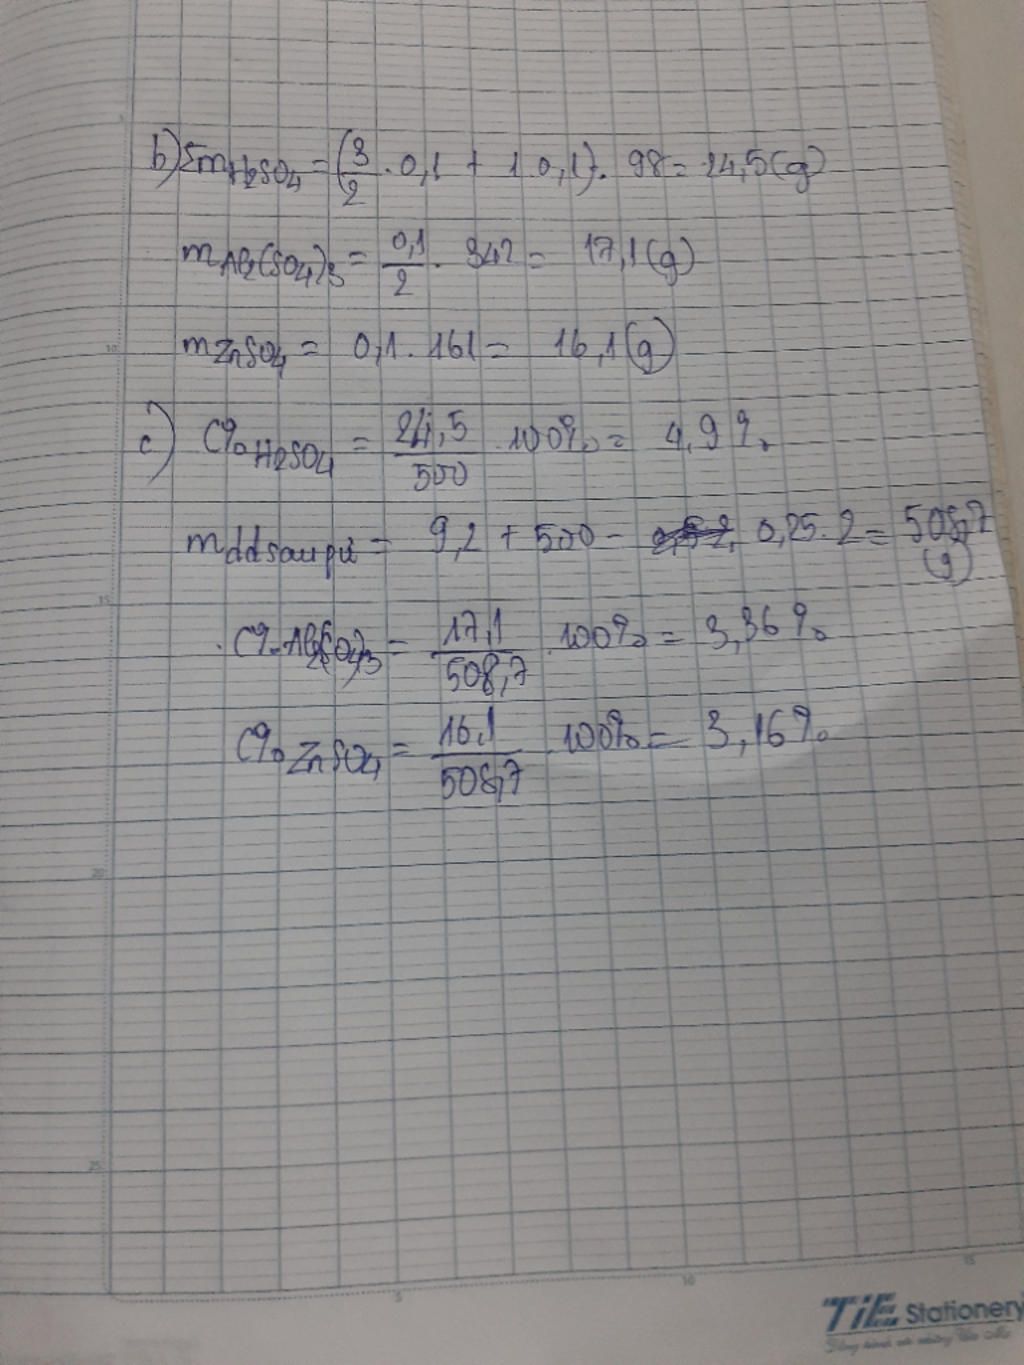 b) Σm H2SO4 = (3/2 . 0,1 + 1.0,1). 98 = 24,5(g)
m Al2(SO4)3 = 0,1/2 . 342 = 17,1(g)
m ZnSO4 = 0,1. 161 = 16,1(g)
c) C% H2SO4 = 24,5/500 .100% = 4,9%
m dd sau pư = 9,2 + 500 - 0,25.2 = 508,7 (g)
C% Al2(SO4)3 = 17,1/508,7 .100% = 3,36%
C% ZnSO4 = 16,1/508,7 .100% = 3,16%
5
10
15
20
25
5
10
15
TiE Stationery